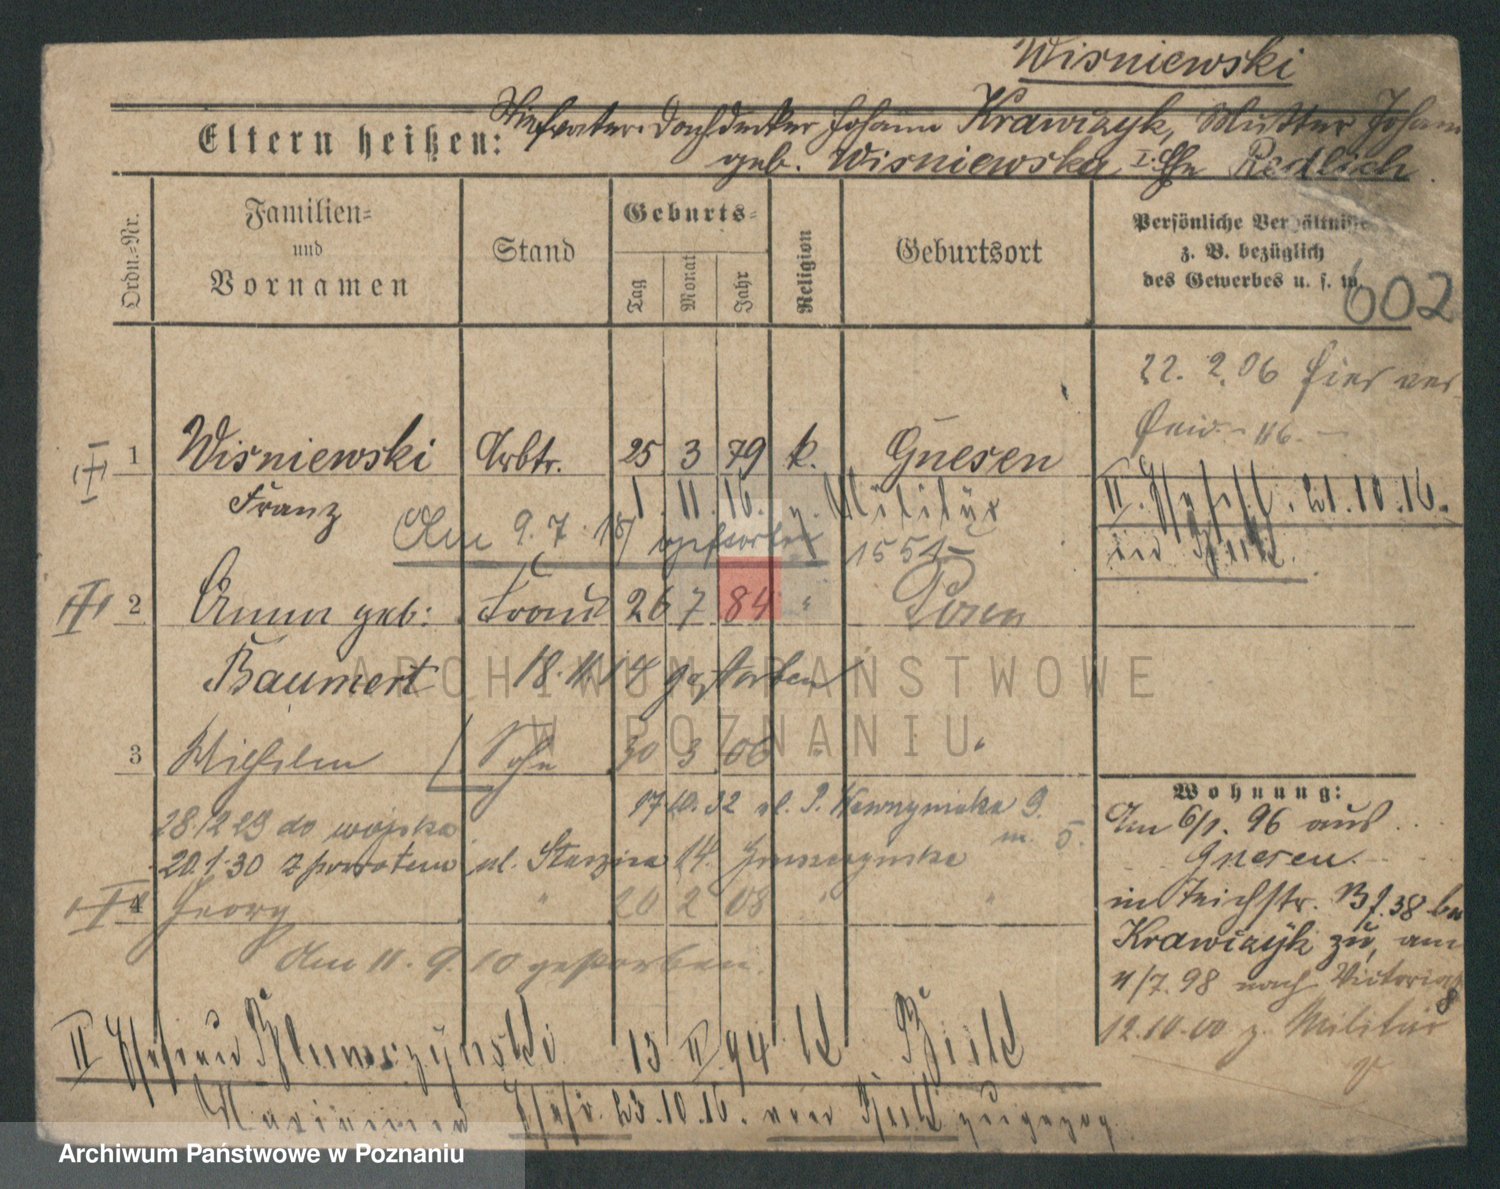 Wisniewski
Eltern heißen: Stiefvater: Dachdecker Johann Krawczyk, Mutter Johann
geb. Wisniewska I. Ehe Redlich.
Ordn.-Nr.
Familien-
und
Vornamen
Stand
Geburts-
Tag
Monat
Jahr
Religion
Geburtsort
Persönliche Verhältnisse
z. B. bezüglich
des Gewerbes u. s. w.
602
22. 2. 06 hier ver
116.
1 Wisniewski Arbtr. 25 3 79 k. Gnesen
Franz 1. 11. 16. z. Militär
II. 21. 10. 16.
Am 9. 7. 18 gestorben 1554
in
2 Anna geb: Frau 26 7 84 " Posen
Baumert 18. 11. 14 gestorben
3 Wilhelm Sohn 30 3 06 " "
Wohnung:
17 10. 32 ul. P. Wawrzyniaka 9.
m. 5.
28.12 29 do wojska
20.1.30 z powrotem ul. Staszica 14. Gruszczynska
4 Georg " 20 2 08 " "
Am 11. 9. 10 gestorben.
Am 6/1. 96 aus
Gnesen.
in Teichstr. 38 bei
Krawczyk zu, am
4/7. 98 nach Victoriastr
8
12.10.00 z. Militär
II Ehefrau 13 II 94 k
23.10.16. zugezog
ARCHIWUM PAŃSTWOWE
W POZNANIU
Archiwum Państwowe w Poznaniu